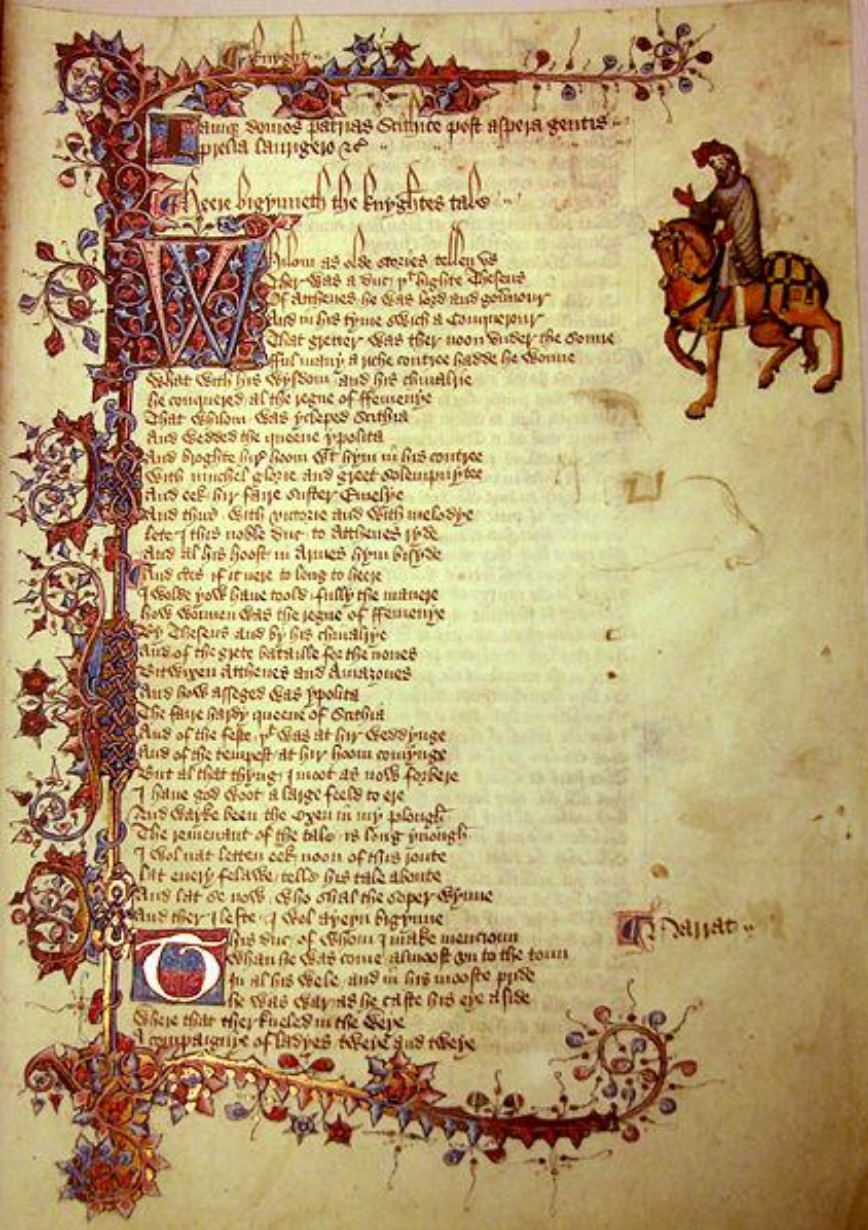 Knyght
Iamque domos patrias Scithice post aspera gentis
prelia laurigero &c
Heere bigynneth the knyghtes tale
Whilom as olde stories tellen us
Ther was a duc þt highte Theseus
Of Atthenes he was lord and gouernour
And in his tyme swich a Conquerour
That gretter was ther noon vnder the sonne
fful many a riche contree hadde he wonne
What with his wysdom and his chiualrie
he conquered al the regne of ffemenye
That whilom was ycleped Scithia
And wedded the queene ypolita
And broghte hir hoom wt hym in his contree
With muchel glorie and greet solempnytee
And eek hir faire suster Emelye
And thus with victorie and with melodye
lete I this noble duc to Atthenes ryde
And al his hoost in Armes hym bisyde
And certes if it nere to long to heere
I wolde yow haue toold fully the manere
how wonnen was the regne of ffemenye
By Theseus and by his chiualrye
And of the grete bataille for the nones
Bitwixen Atthenes and Amazones
And how asseged was ypolita
The faire hardy queene of Scithia
And of the feste þt was at hir weddynge
And of the tempest at hir hoom comynge
But al that thyng I moot as now forbere
I haue god woot a large feeld to ere
And wayke been the Oxen in my plough
The remenant of the tale is long ynough
I wol nat letten eek noon of this route
lat euery felawe telle his tale aboute
And lat se now who shal the soper wynne
And ther I lefte I wol ayeyn bigynne
This duc of whom I make mencioun
Whan he was come almoost vn to the toun
In al his wele and in his mooste pride
he was war as he caste his eye aside
Where that ther kneled in the weye
A compaignye of ladyes tweye and tweye
Narrat